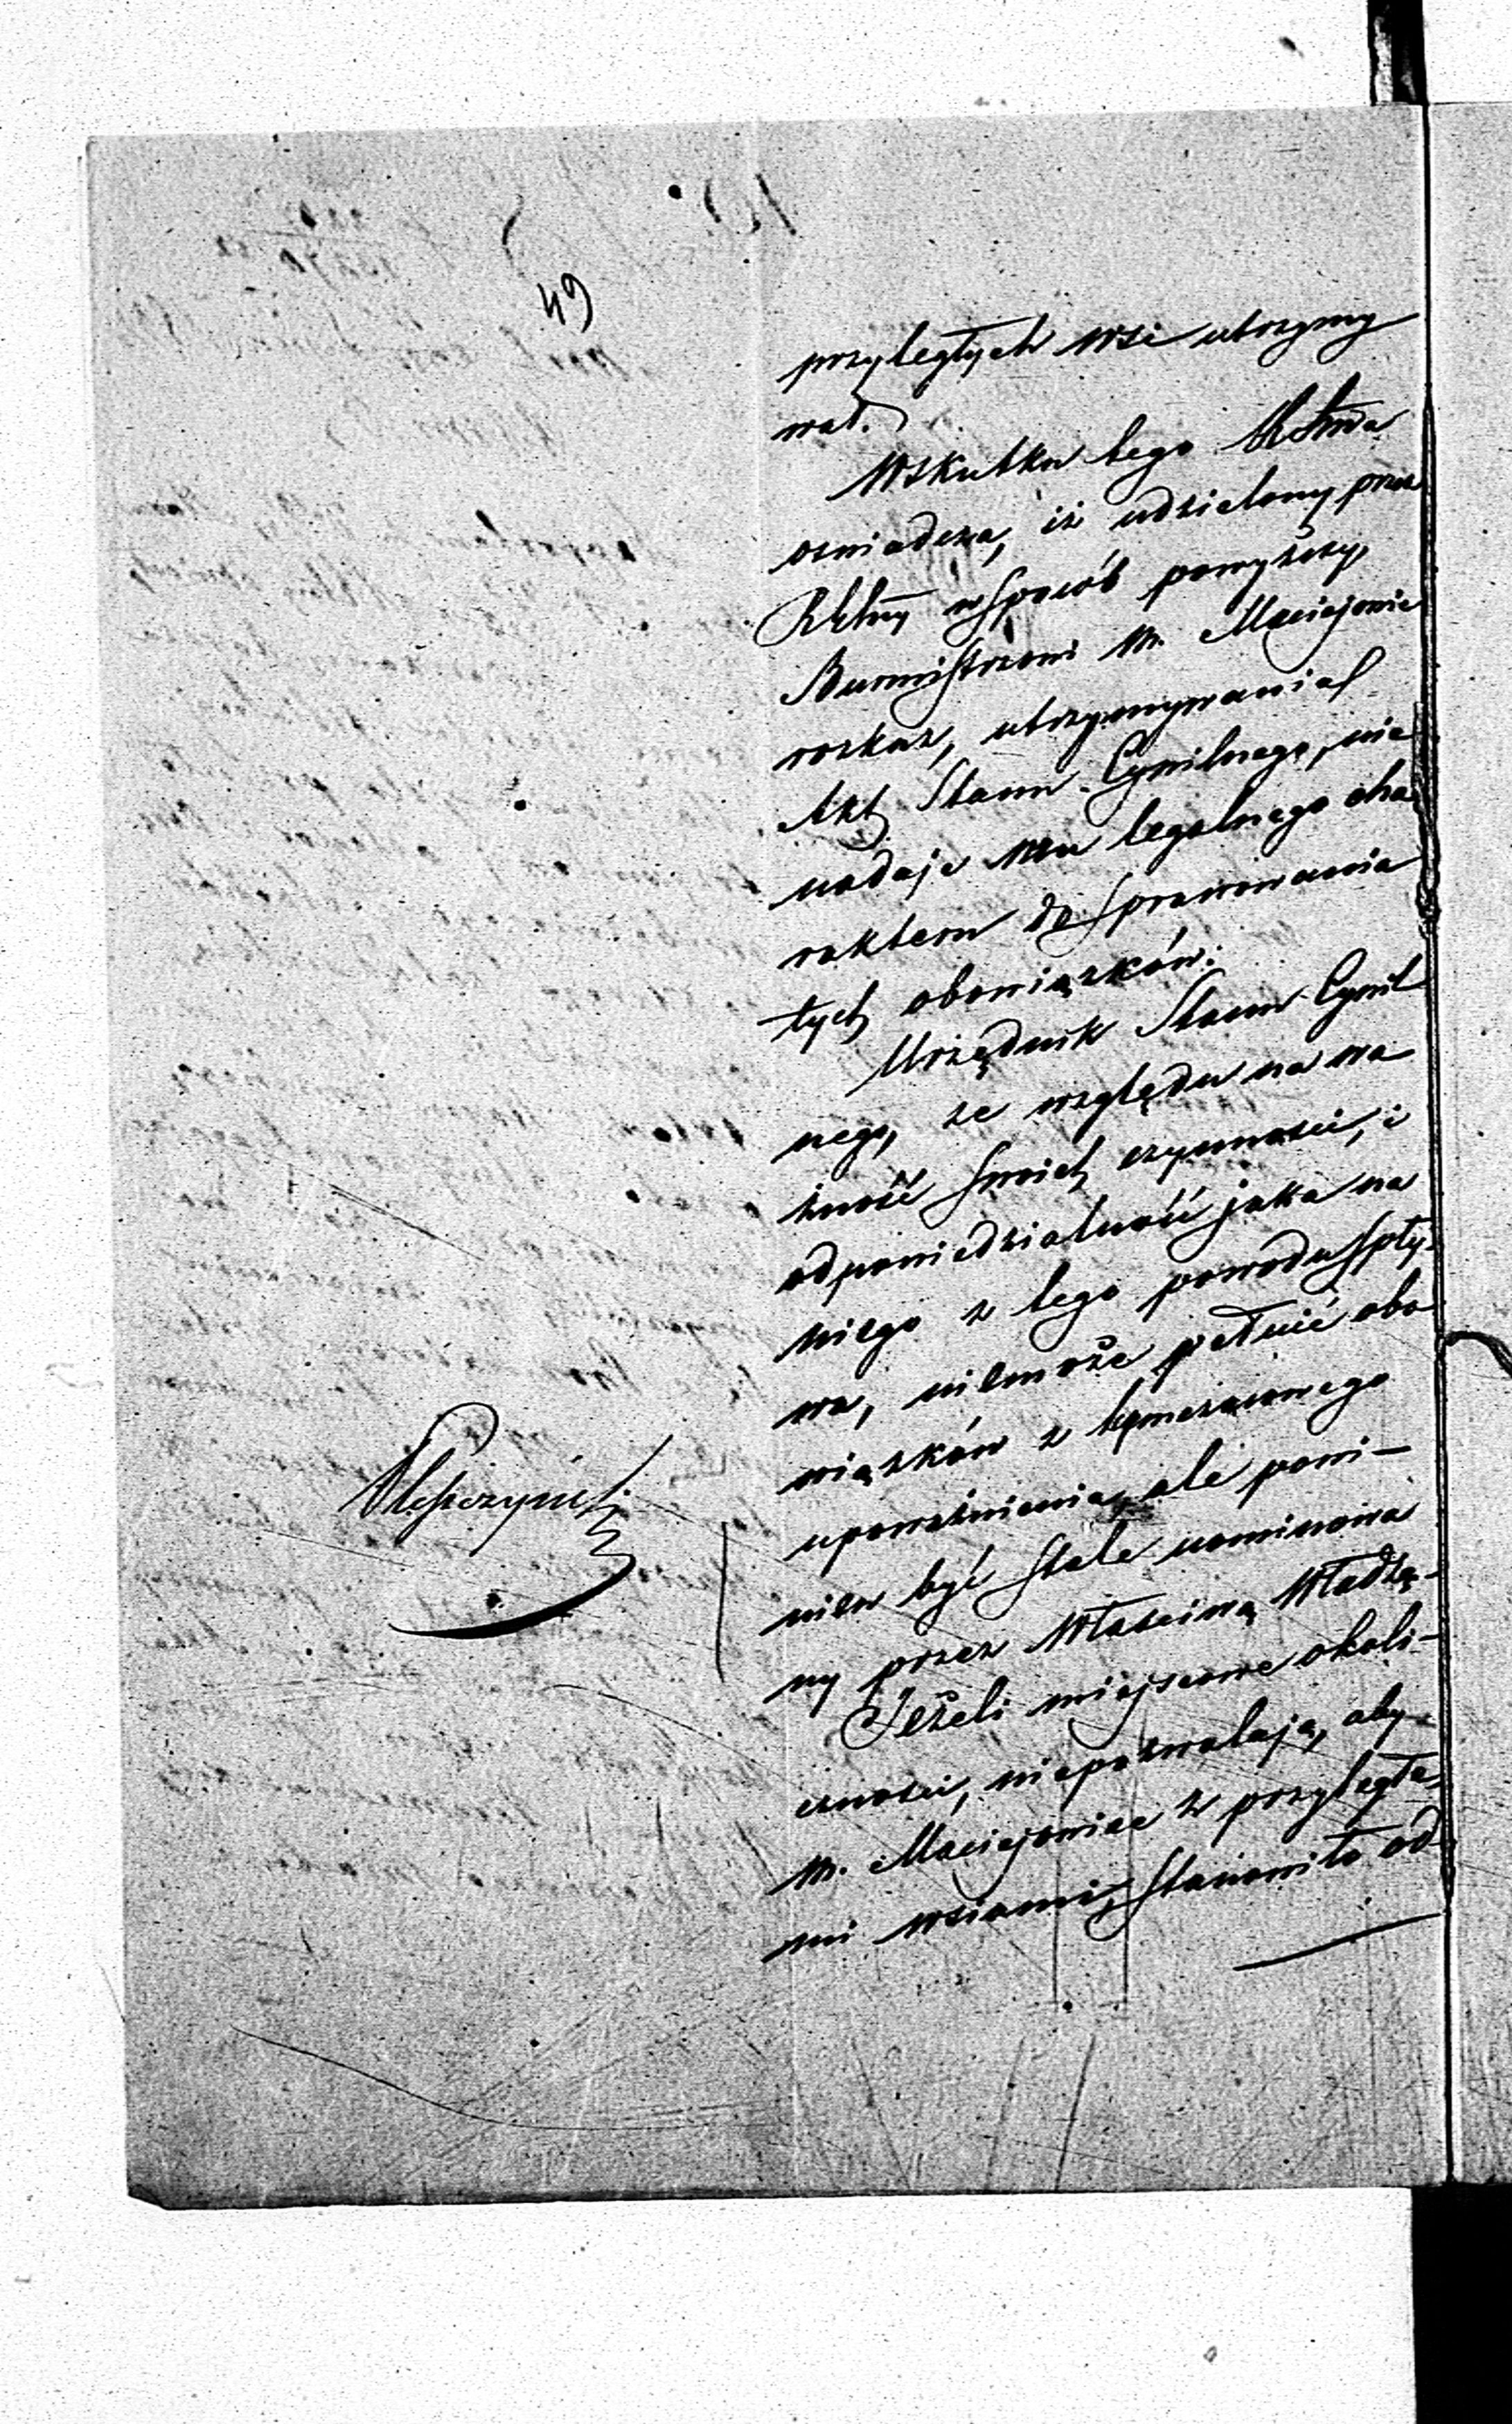 49
przyległych wsi utrzymy
wał.
Wskutku tego
oswiadcza, iż udzielony przez
wsposób powyższy,
Burmistrzowi M. Maciejowic
rozkaz, utrzymywania
Akt Stanu Cywilnego, nie
nadaje mu legalnego cha
rakteru do sprawowania
tych obowiązków.
Urzędnik Stanu Cywil
nego, ze względu na wa
żność swoich czynności, i
odpowiedzialność jaka na
niego z tego powodu spły
wa, niemoże pełnić obo
wiązków z tymczasowego
upoważnienia, ale powi-
nien być stale nominowa
ny przez Własciwą Władzę.
Jeżeli miejscowe okoli-
czności, niepozwalają, aby
M. Maciejowice z przyległe
mi wsiami, stanowiło od